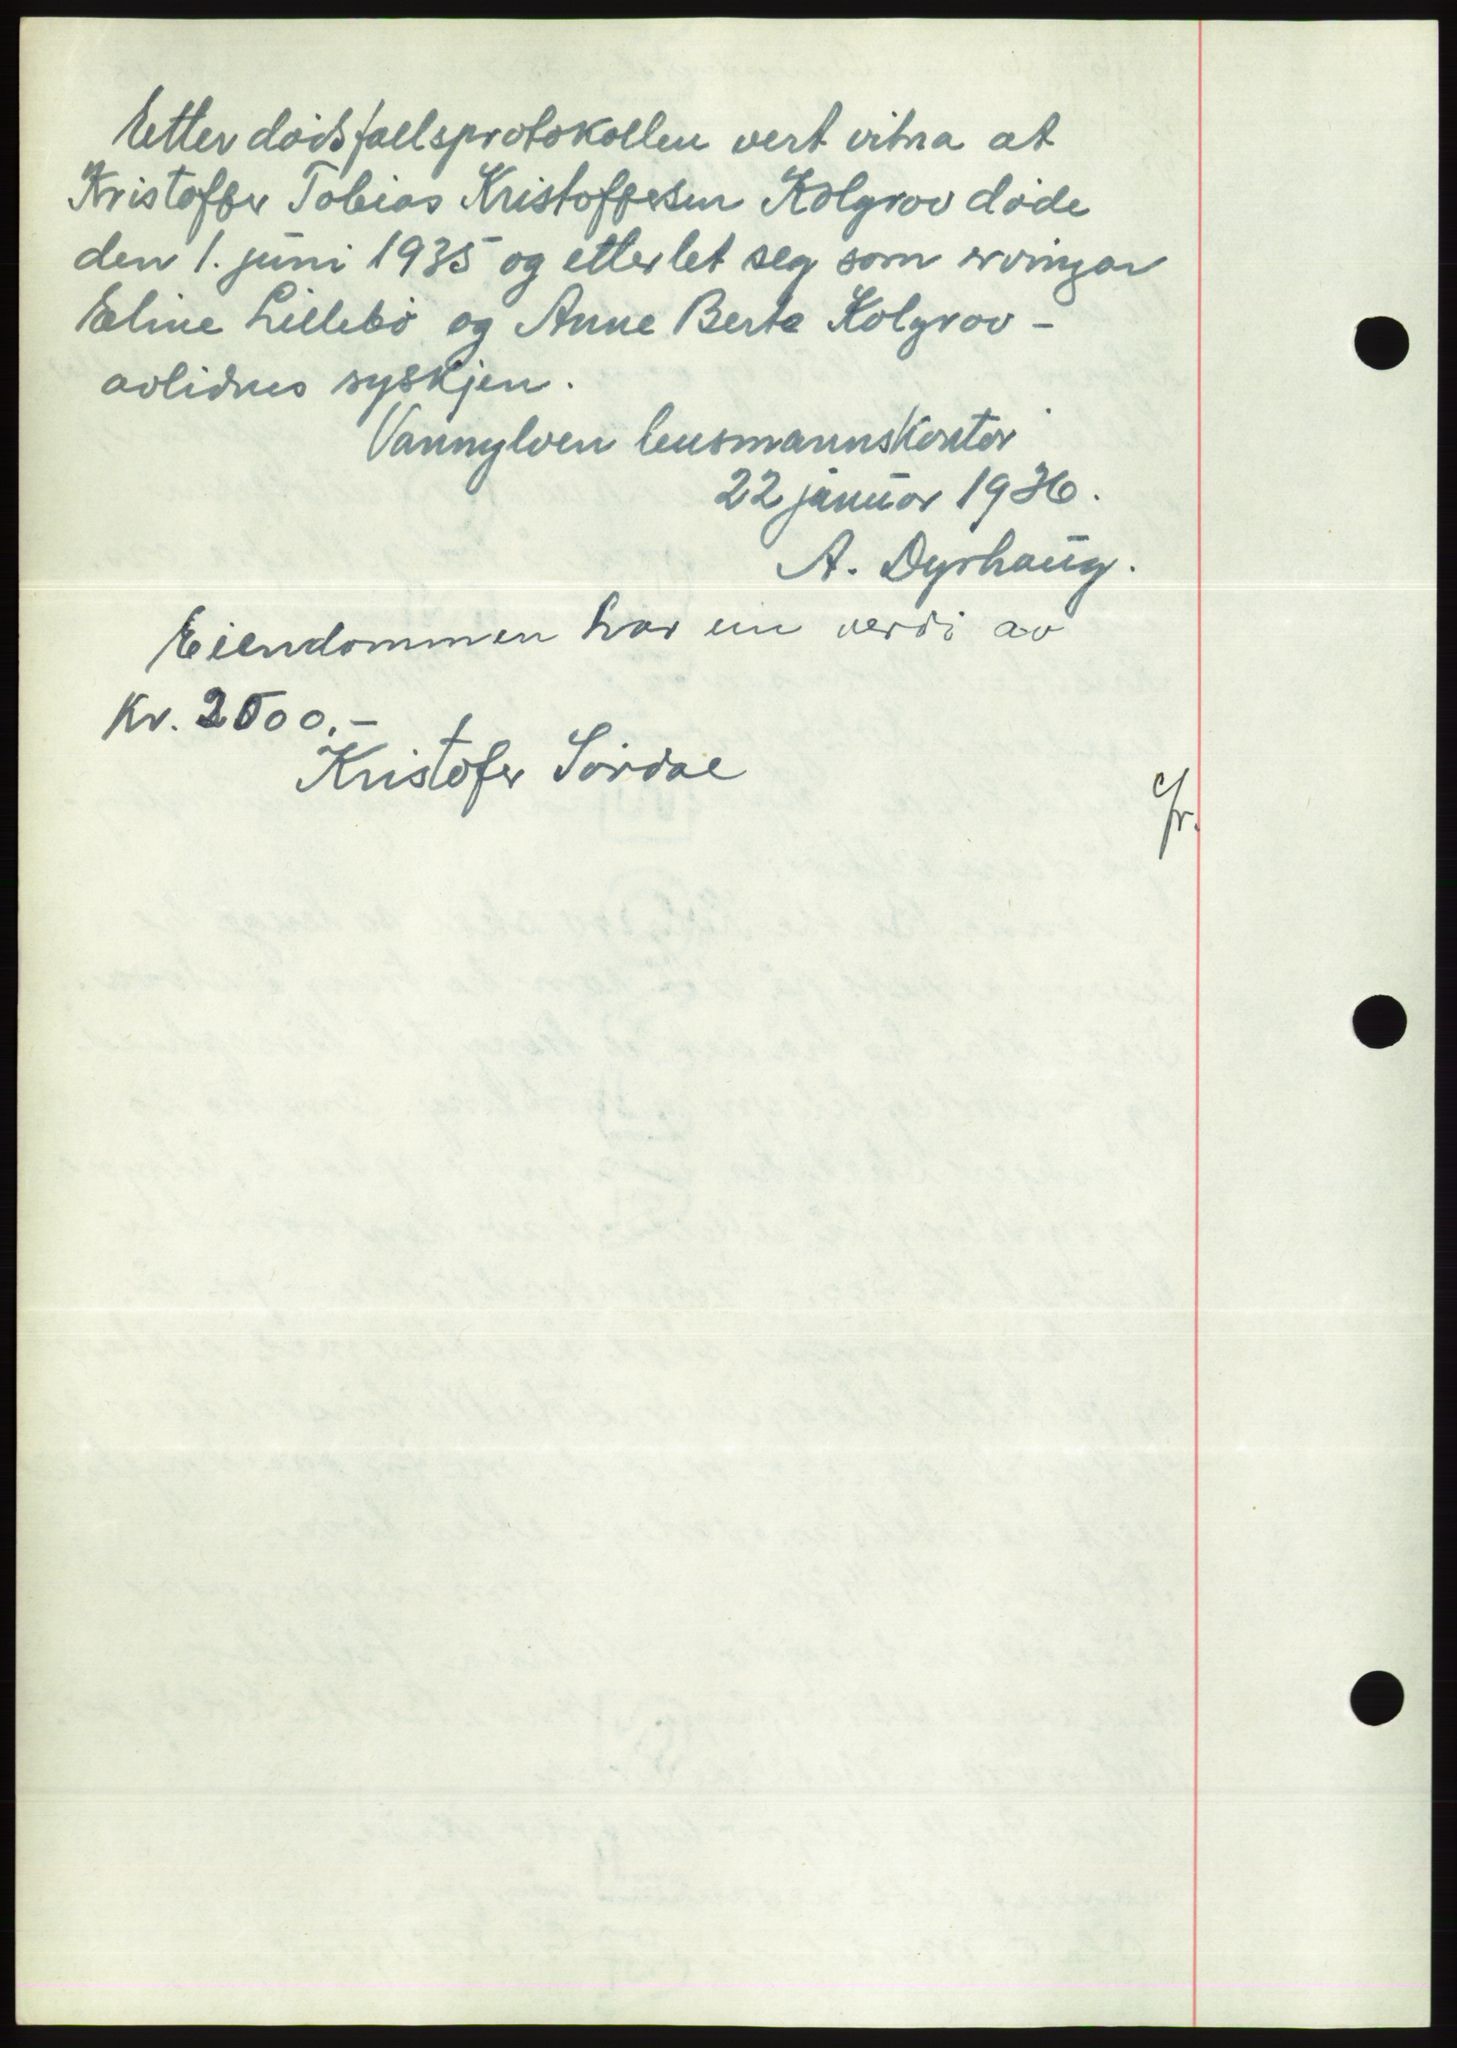 Etter dødsfallsprotokollen vert vitna at
Kristoffer Tobias Kristoffersen Kolgrov døde
den 1. juni 1935 og etterlet seg som ervingar
Eline Lillebø og Anne Berte Kolgrov -
avlidnes syskjen.
Vannylven lensmannskontor
22 januar 1936.
A. Dyrhaug.
Eiendommen har ein verdi av
Kr. 2500.-
Kristofer Sørdal